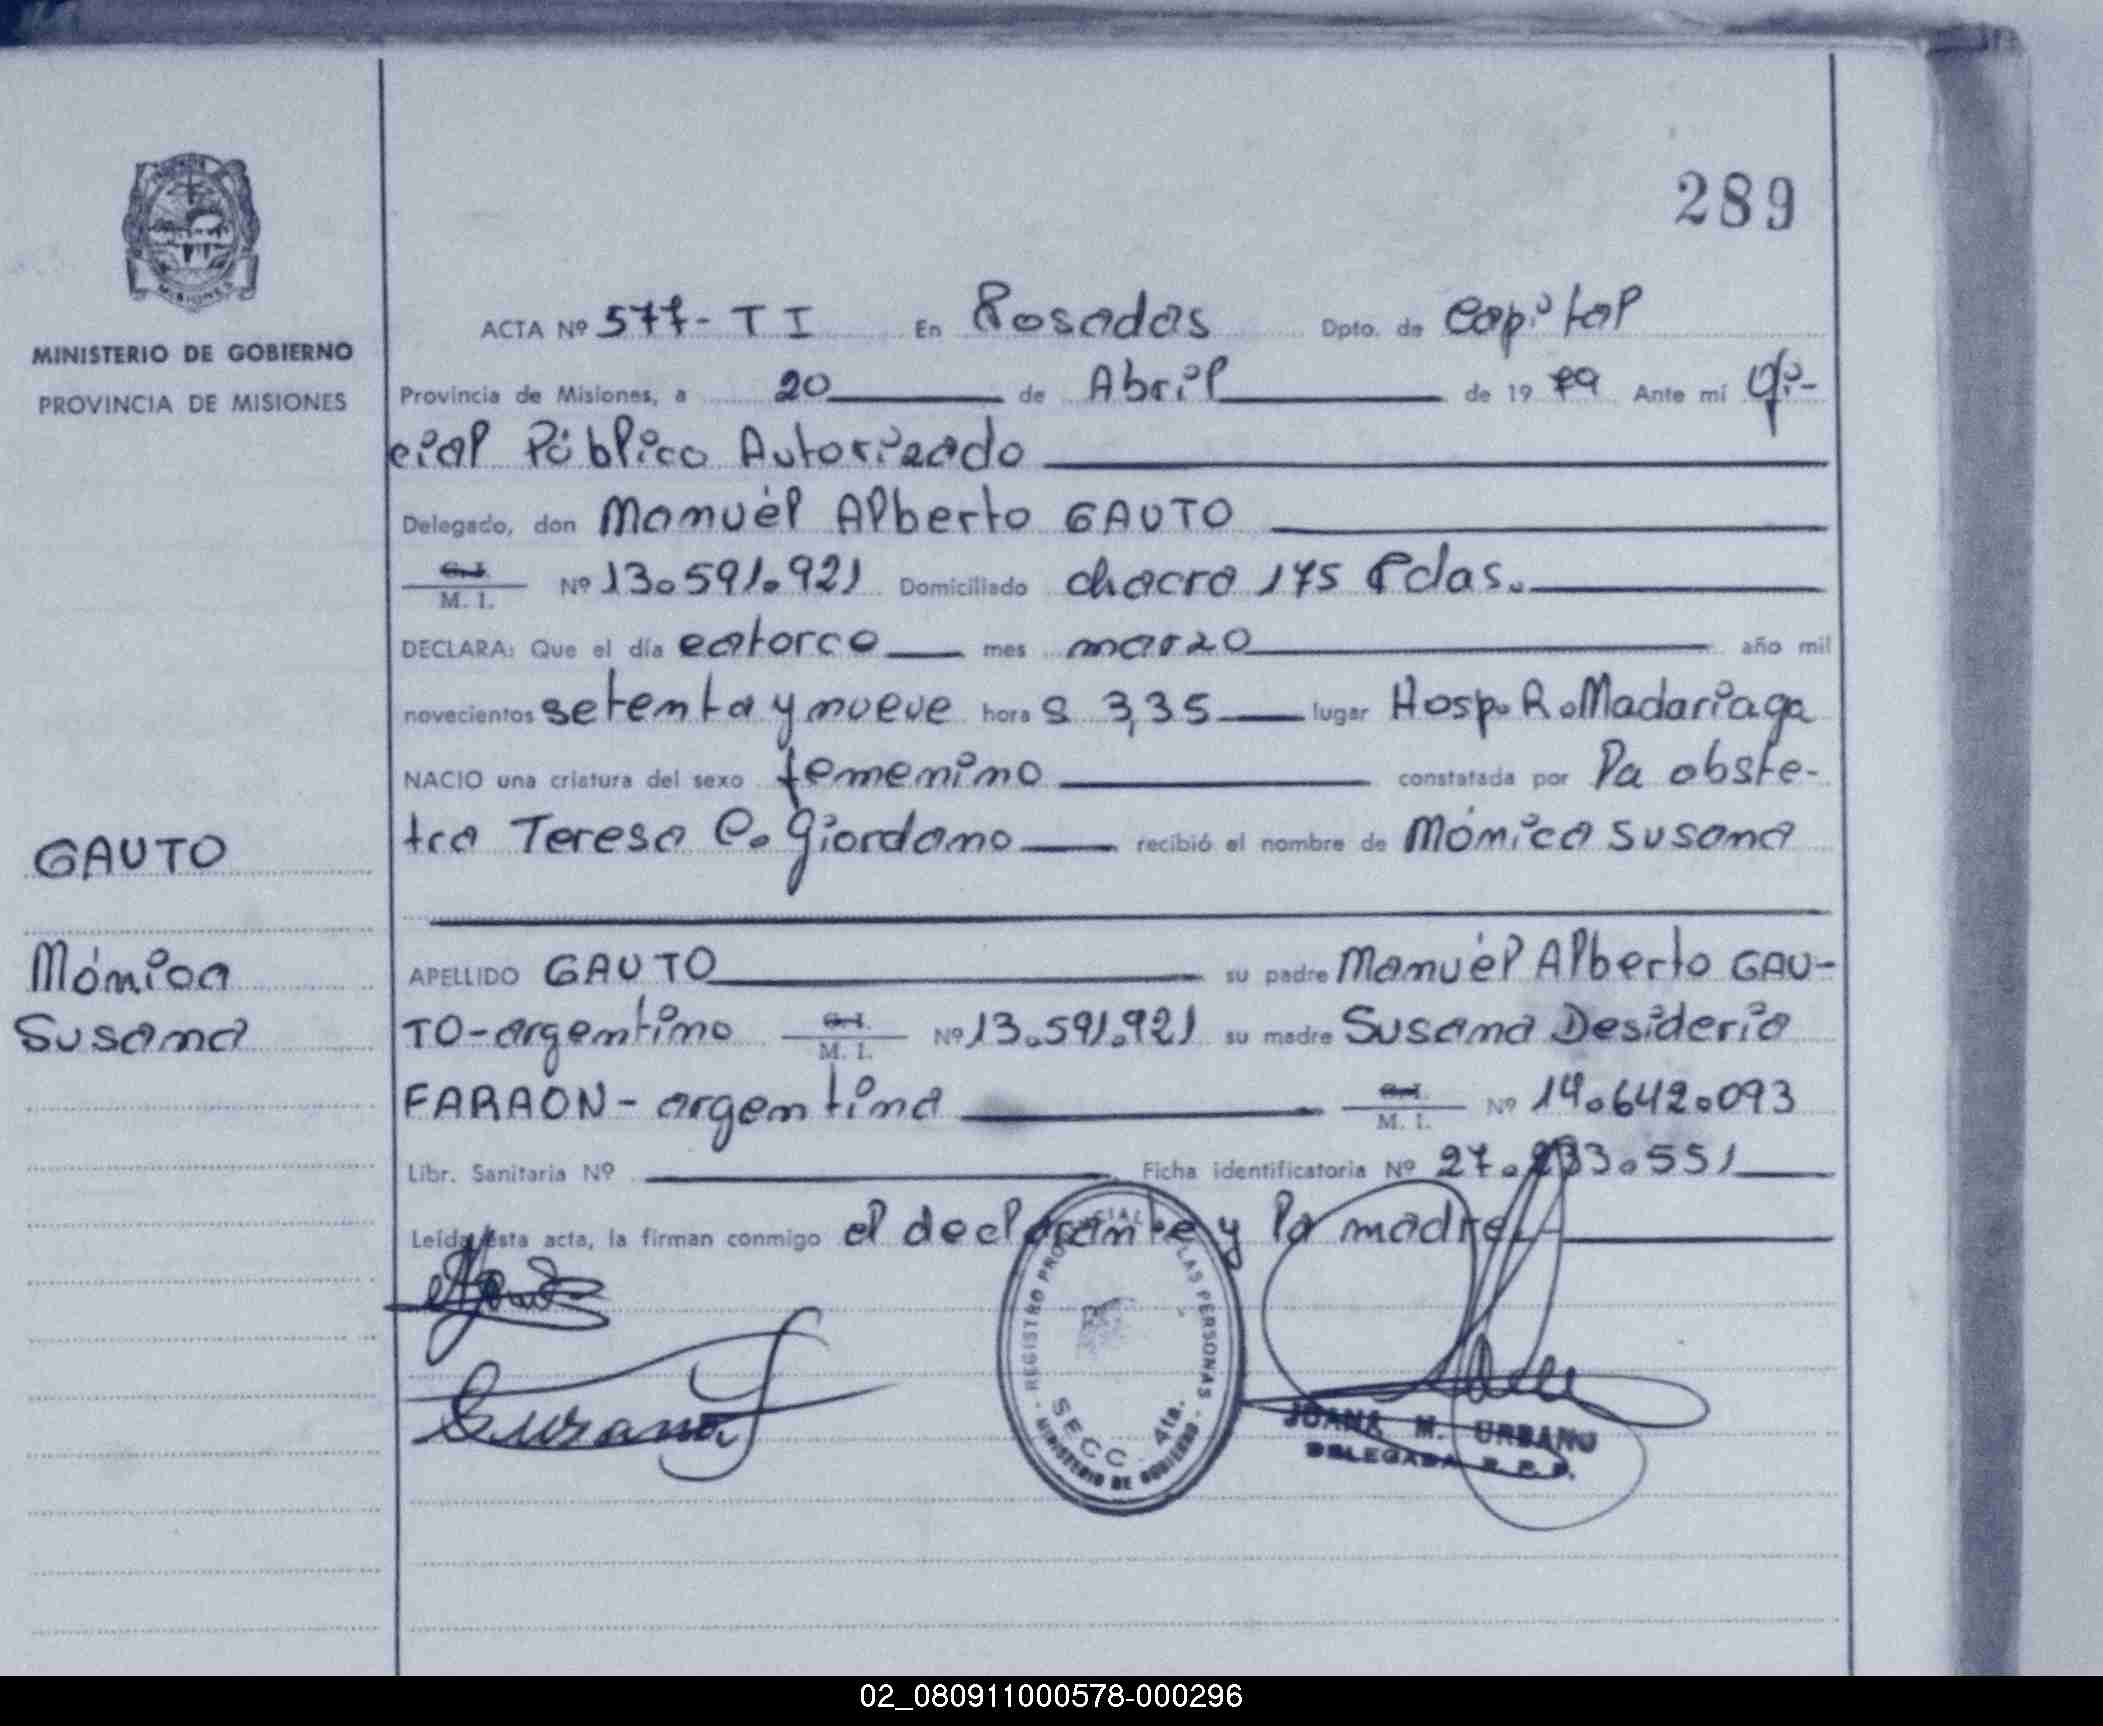 289
MINISTERIO DE GOBIERNO
PROVINCIA DE MISIONES
ACTA Nº 577- T I En Posadas Dpto. de Capital
Provincia de Misiones, a 20 de Abril de 19 79 Ante mí Ofi-
cial Público Autorizado
Delegado, don Manuél Alberto GAUTO
C. I. M. I. Nº 13.591.921 Domiciliado chacra 175 Pdas.
DECLARA: Que el día catorce mes marzo año mil
novecientos setenta y nueve hora s 3,35 lugar Hosp. R. Madariaga
NACIO una criatura del sexo femenino constatada por la obste-
tra Teresa C. Giordano recibió el nombre de Mónica Susana
GAUTO
Mónica
Susana
APELLIDO GAUTO su padre Manuél Alberto GAU-
TO-argentino C. I. M. I. Nº 13.591.921 su madre Susana Desideria
FARAON - argentina C. I. M. I. Nº 14.642.093
Libr. Sanitaria Nº Ficha identificatoria Nº 27.233.551
Leída esta acta, la firman conmigo el declarante y la madre
Susana
REGISTRO PROVINCIAL LAS PERSONAS
SECC. 4ta.
MINISTERIO DE GOBIERNO
JOANA M. URBANO
DELEGADA R. P. P.
02_080911000578-000296